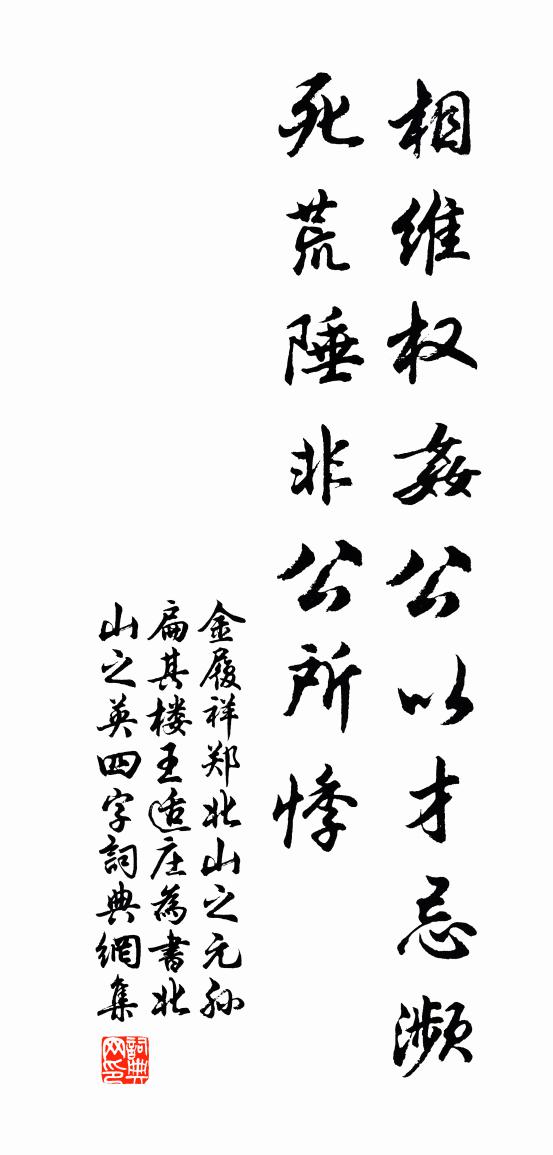 相维权姦公以才忌濒
死荒陲非公所悸
金履祥郑北山之元孙
扁其楼王适庄為書北
山之英四字詞典網集
詞典网印